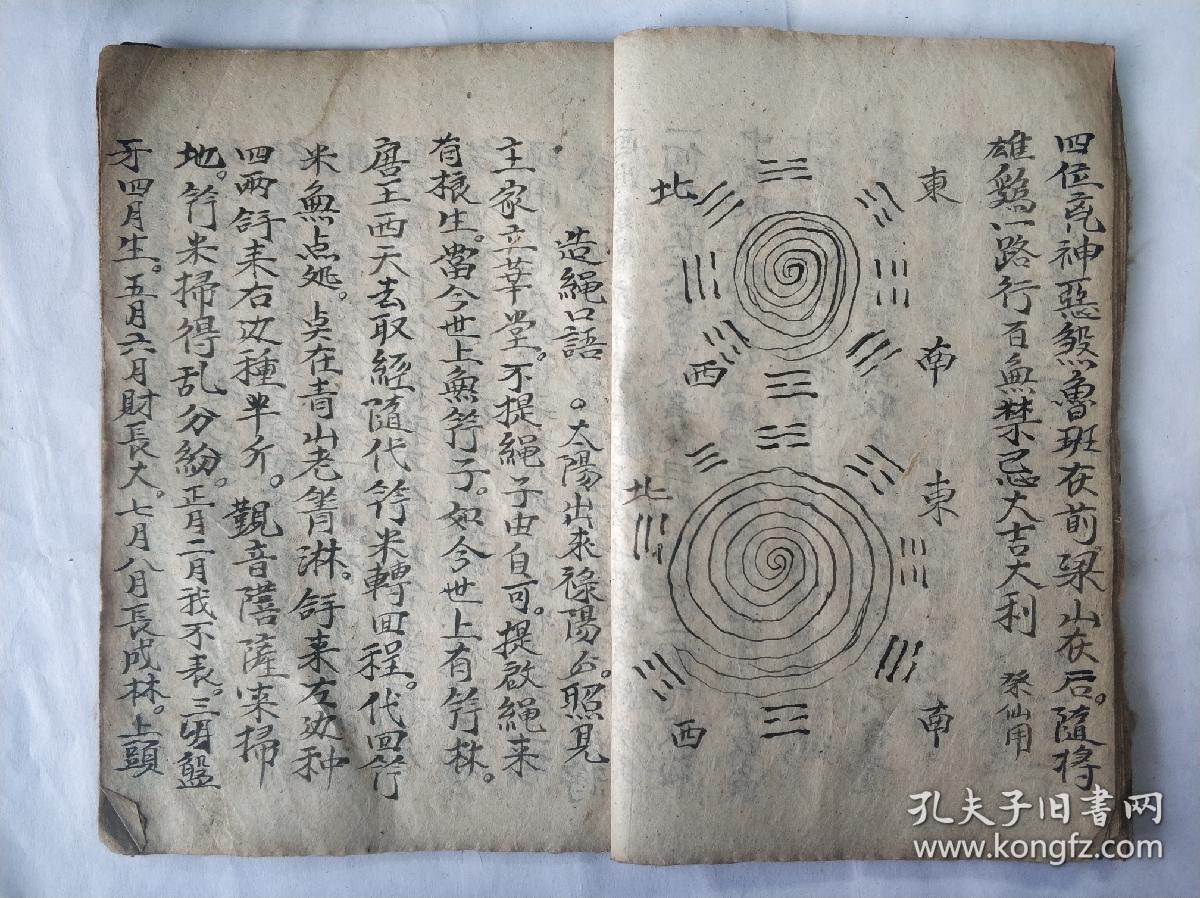 四位亮神惡煞魯班在前梁山在后。隨將
雄鷄一路行百無禁忌大吉大利 祭仙用
東
北
南
西
東
北
南
西
造繩口語 。太陽出來祿陽台。照見
主家立華堂。不提繩子由自可。提啟繩來
有根生。當今世上無竹子。如今世上有竹林。
唐王西天去取經隨代竹米轉回程。代回竹
米無点処。点在青山老箐淋。左边种
四兩右边種半斤。觀音菩薩來掃
地。竹米掃得乱分紛。正月二月我不表。三月盤
牙四月生。五月六月財長大。七月八月長成林。上頭
孔夫子旧书网
www.kongfz.com